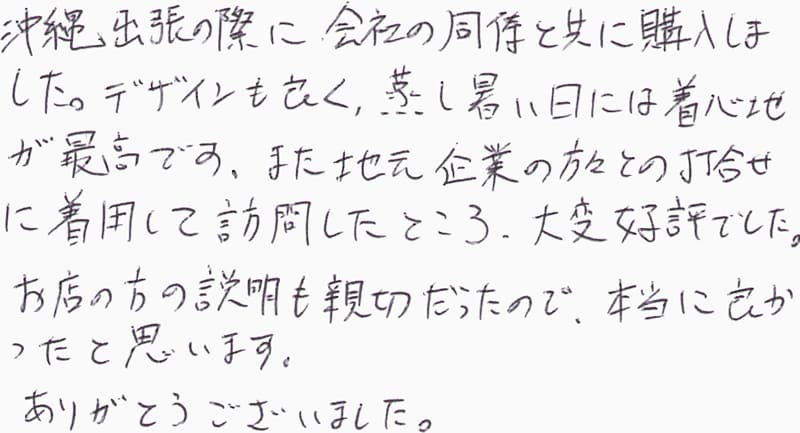 沖縄出張の際に会社の同僚と共に購入しま
した。デザインも良く、蒸し暑い日には着心地
が最高です。また地元企業の方々との打合せ
に着用して訪問したところ、大変好評でした。
お店の方の説明も親切だったので、本当に良か
ったと思います。
ありがとうございました。